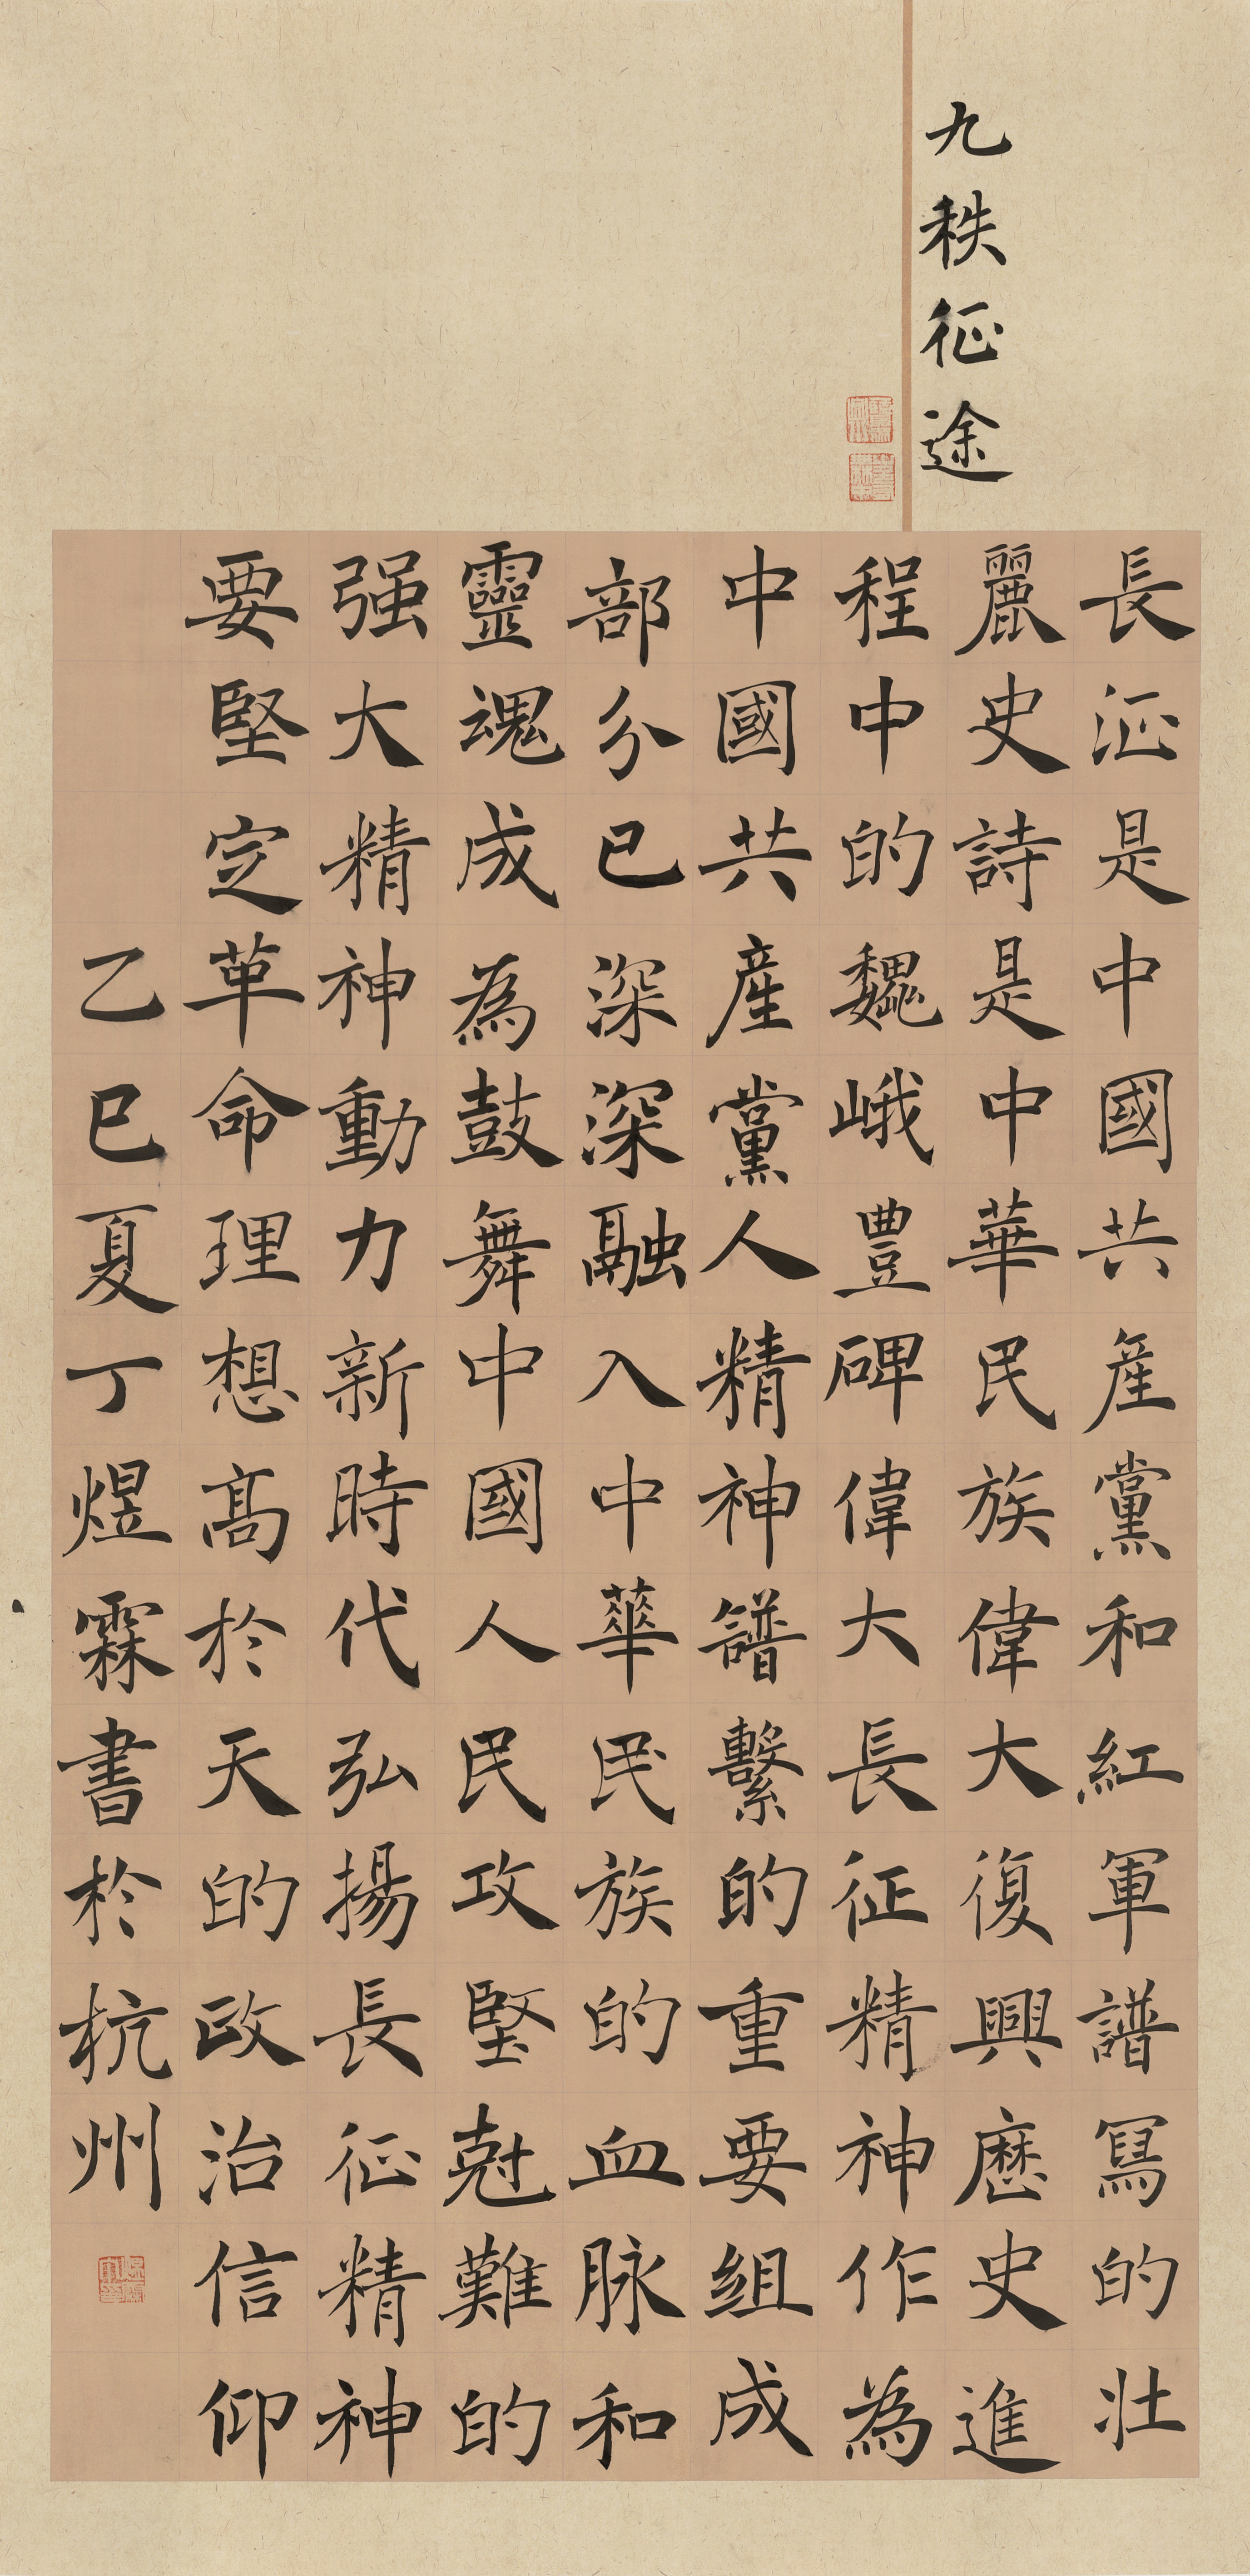 九秩征途
長征是中國共産黨和紅軍譜寫的壯
麗史詩是中華民族偉大復興歷史進
程中的巍峨豐碑偉大長征精神作為
中國共産黨人精神譜繫的重要組成
部分已深深融入中華民族的血脉和
靈魂成為鼓舞中國人民攻堅克難的
强大精神動力新時代弘揚長征精神
要堅定革命理想高於天的政治信仰
乙巳夏丁煜霖書於杭州